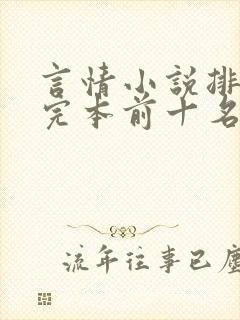 言情小說排
完本前十名
流年往事已塵